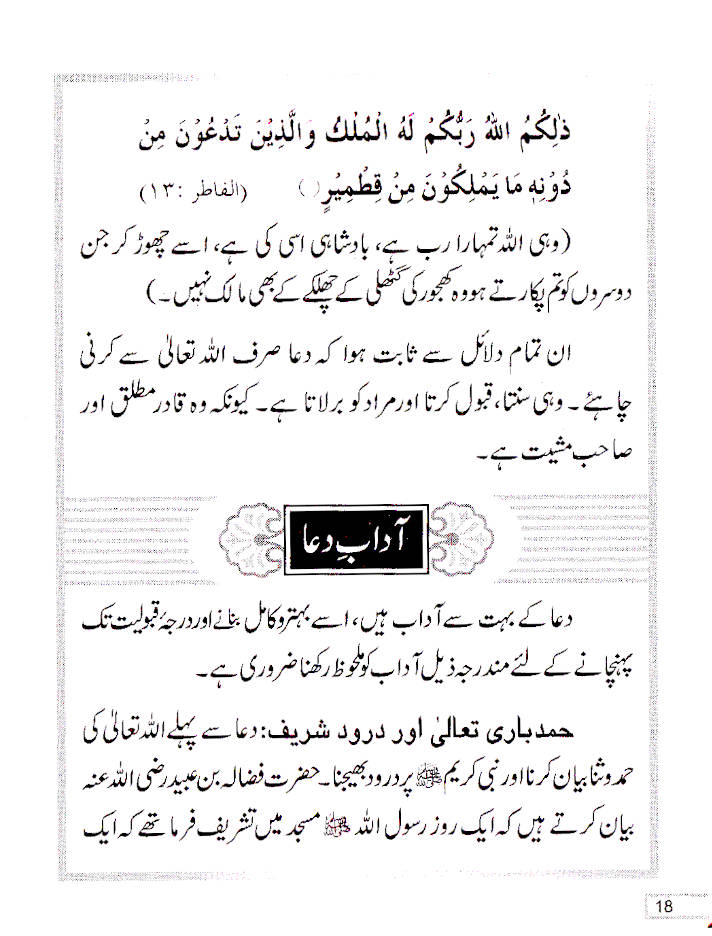 ذٰلِكُمُ اللهُ رَبُّكُمْ لَهُ الْمُلْكُ وَالَّذِيْنَ تَدْعُوْنَ مِنْ
دُوْنِهٖ مَا يَمْلِكُوْنَ مِنْ قِطْمِيْرٍ ( ) (الفاطر :۱۳)
(وہی اللہ تمہارا رب ہے، بادشاہی اسی کی ہے، اسے چھوڑ کر جن
دوسروں کو تم پکارتے ہو وہ کھجور کی گٹھلی کے چھلکے کے بھی مالک نہیں۔)
ان تمام دلائل سے ثابت ہوا کہ دعا صرف اللہ تعالیٰ سے کرنی
چاہئے۔ وہی سنتا، قبول کرتا اور مراد کو بر لاتا ہے۔ کیونکہ وہ قادر مطلق اور
صاحب مشیت ہے۔
آدابِ دعا
دعا کے بہت سے آداب ہیں، اسے بہتر و کامل بنانے اور درجۂ قبولیت تک
پہنچانے کے لئے مندرجہ ذیل آداب کو ملحوظ رکھنا ضروری ہے۔
حمد باری تعالیٰ اور درود شریف: دعا سے پہلے اللہ تعالیٰ کی
حمد و ثنا بیان کرنا اور نبی کریم ﷺ پر درود بھیجنا۔ حضرت فضالہ بن عبید رضی اللہ عنہ
بیان کرتے ہیں کہ ایک روز رسول اللہ ﷺ مسجد میں تشریف فرما تھے کہ ایک
18